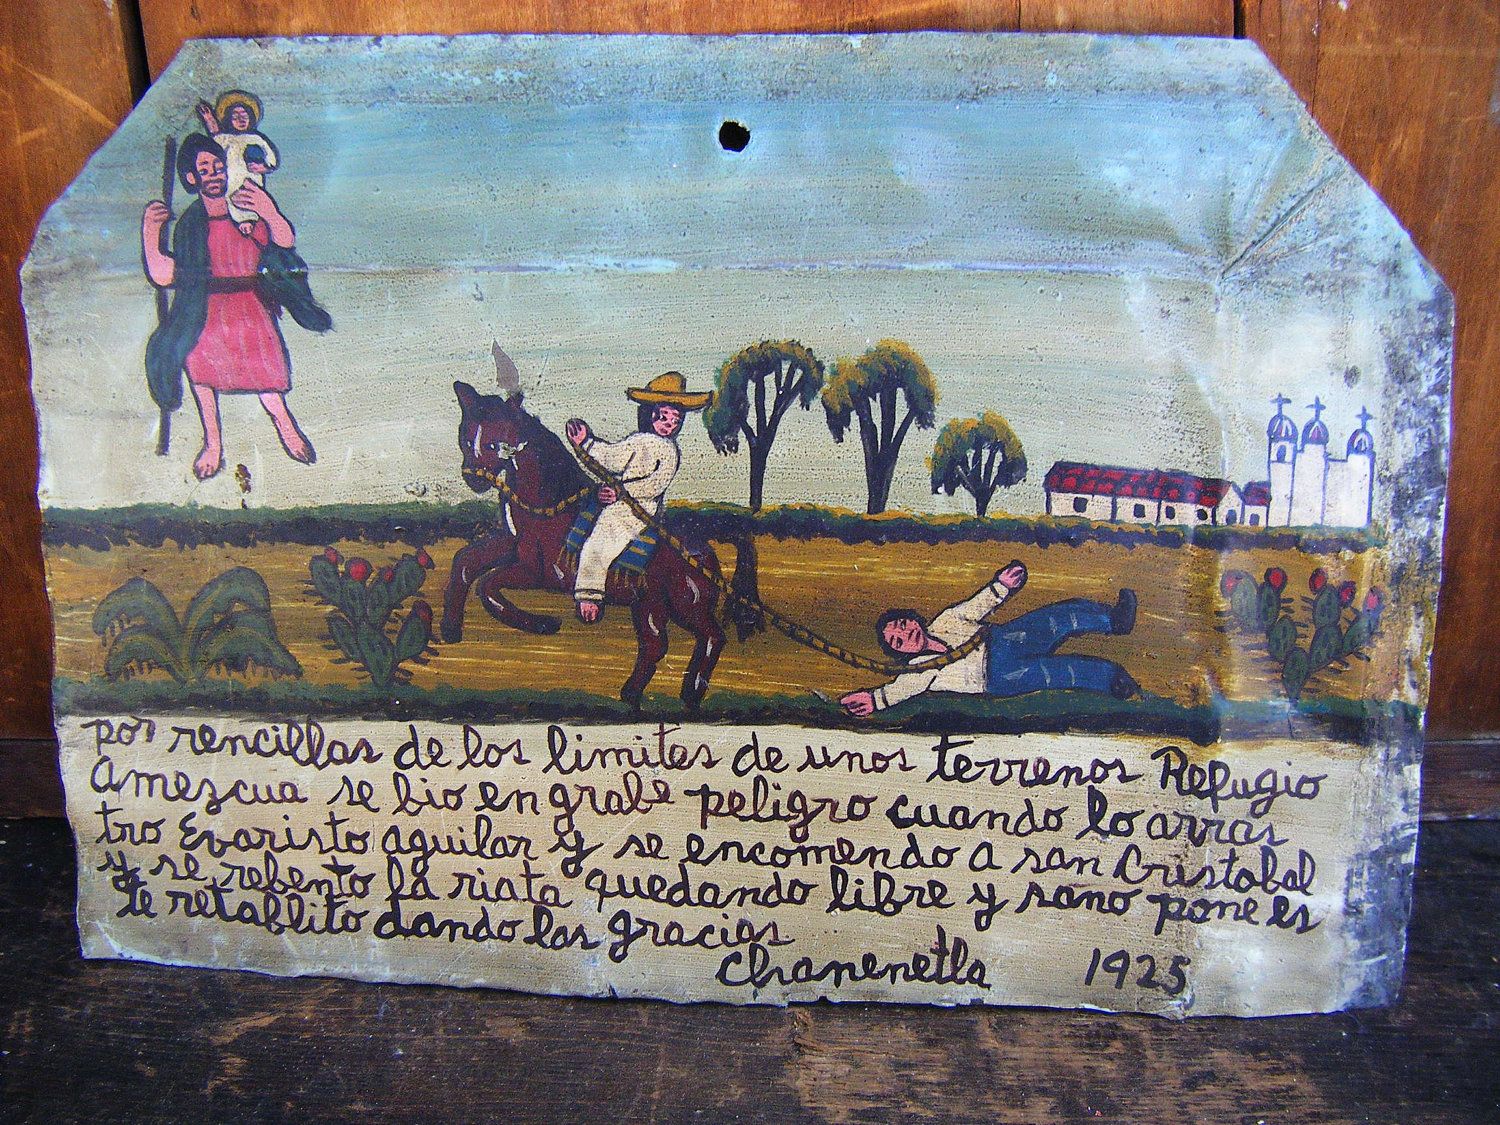 por rencillas de los limites de unos terrenos Refugio
Amezcua se bio en grabe peligro cuando lo arras
tro Evaristo aguilar y se encomendo a san Cristobal
y se rebento la riata quedando libre y sano pone es
te retablito dando las gracias
Chanenetla 1925